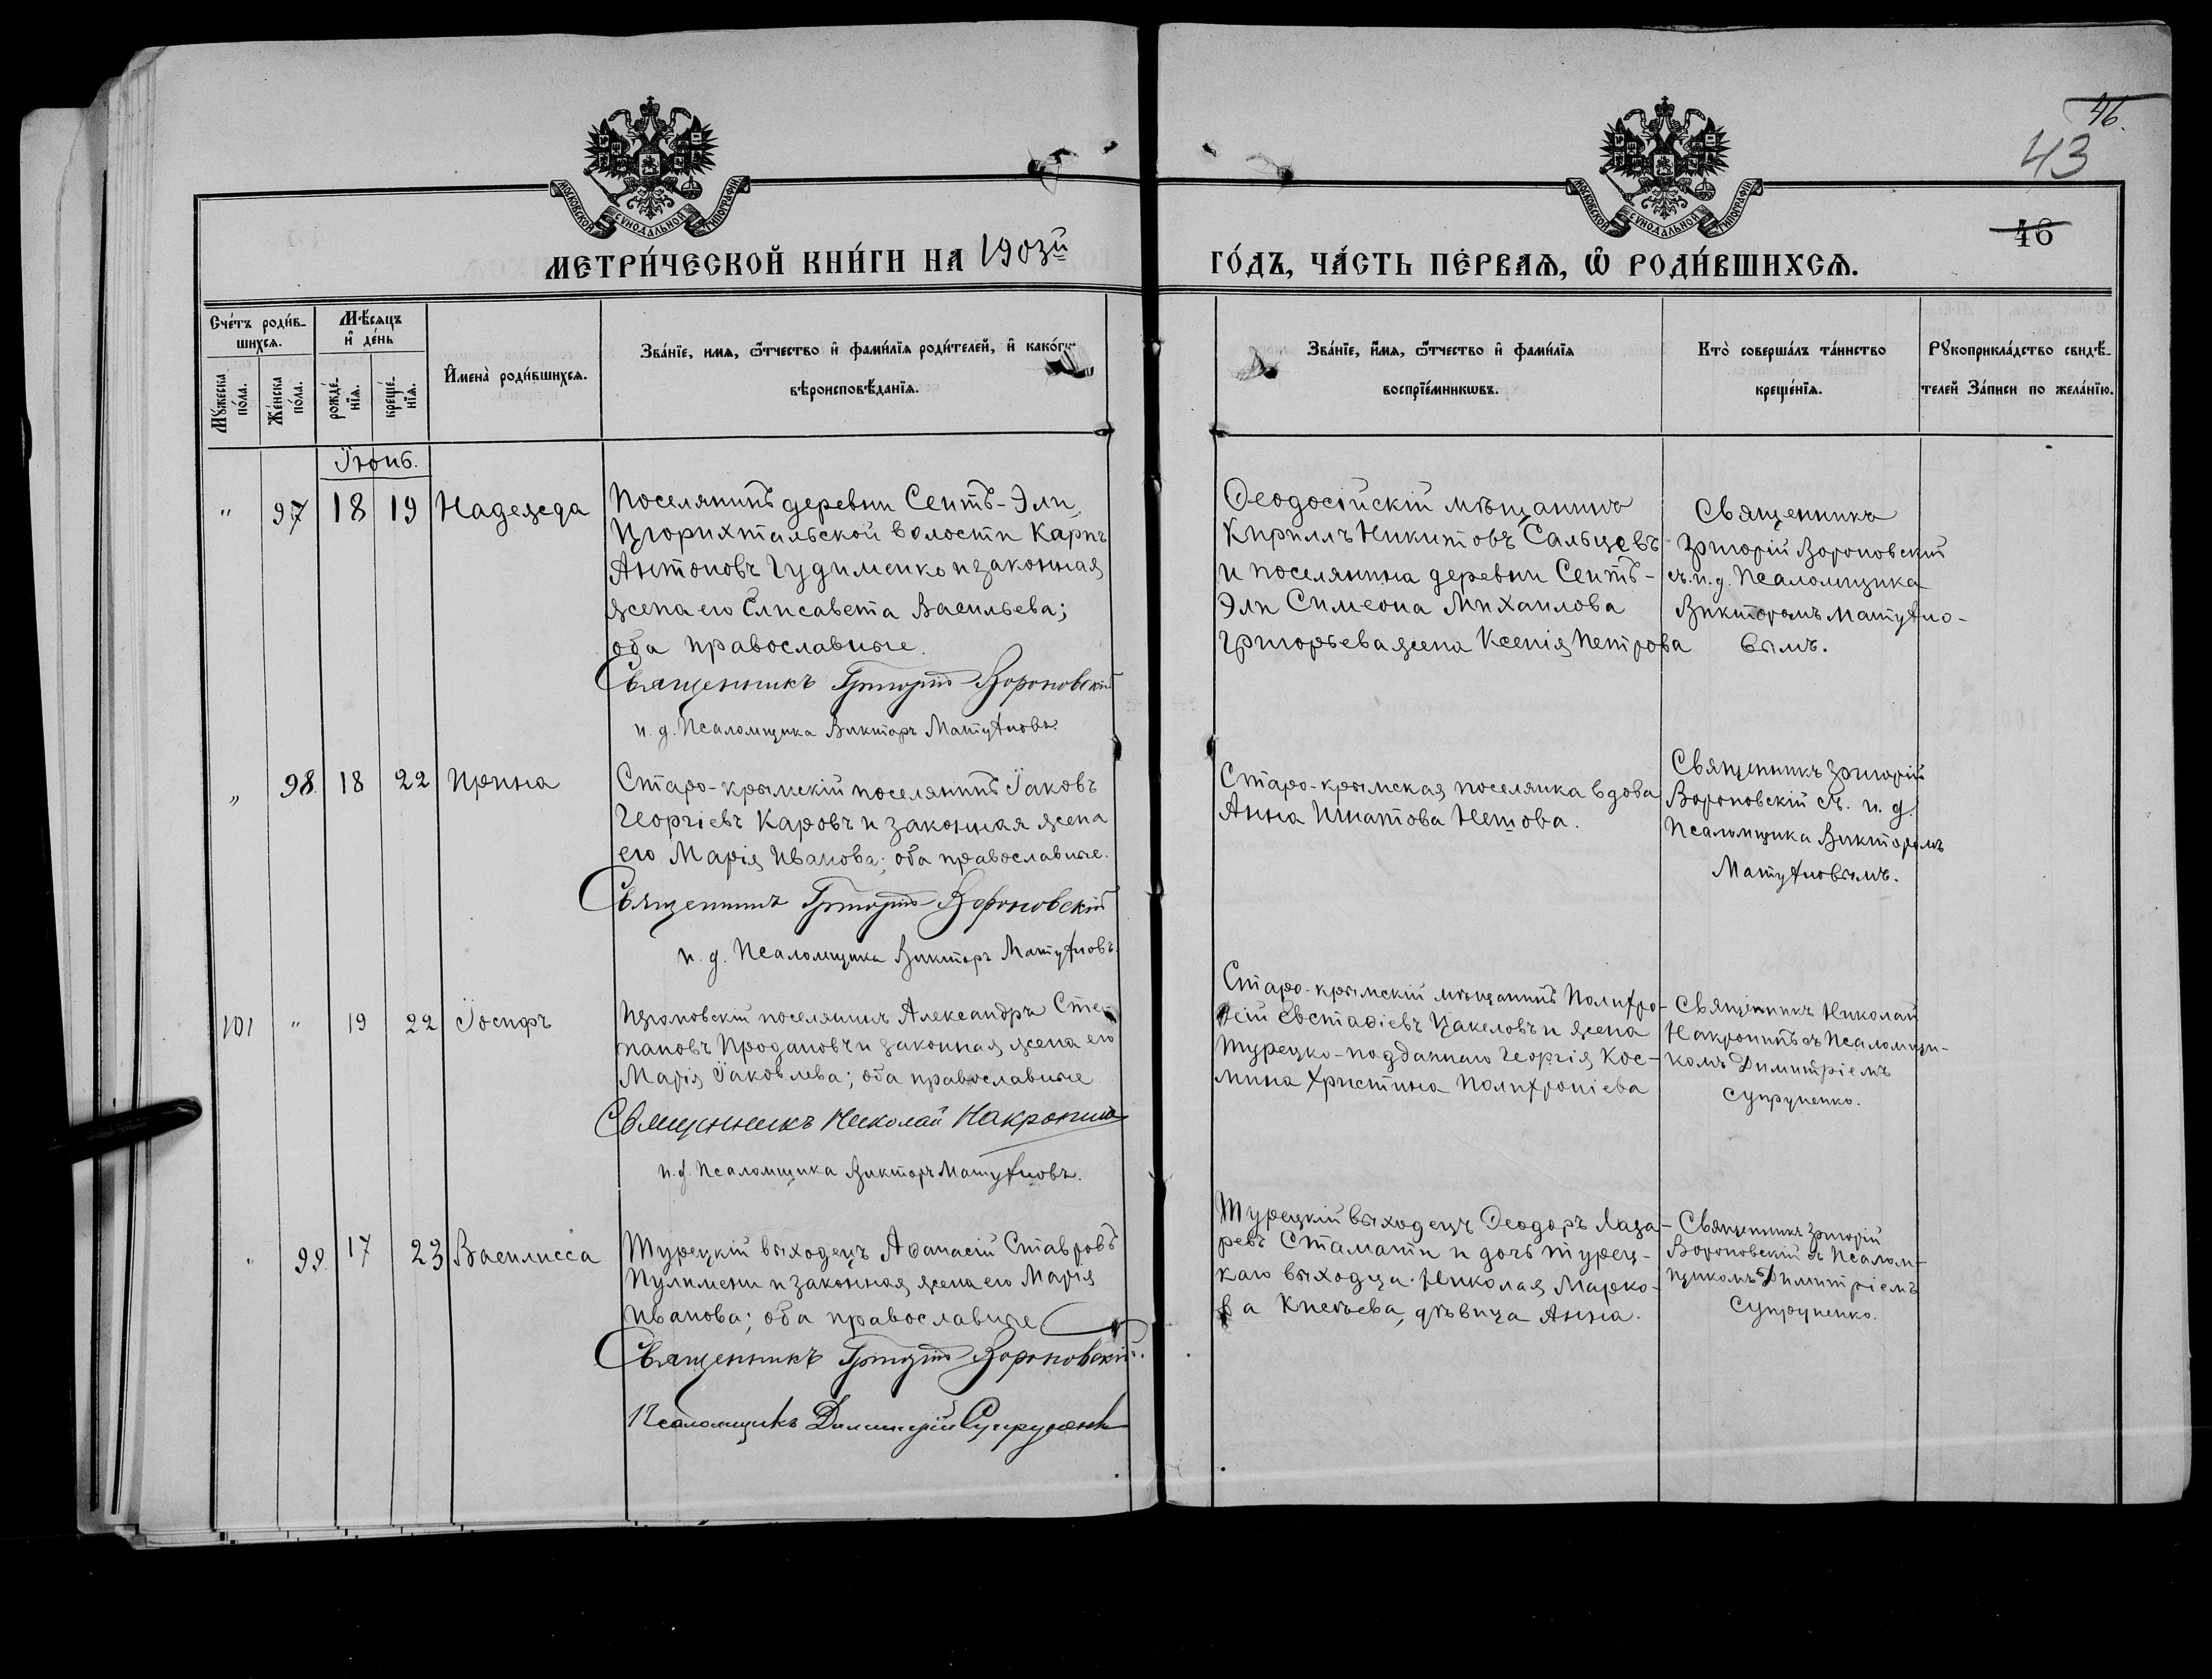 46.
43
46
МОСКОВСКОЙ СѴНОДАЛЬНОЙ ТИПОГРАФІИ
МОСКОВСКОЙ СѴНОДАЛЬНОЙ ТИПОГРАФІИ
МЕТРИ́ЧЕСКОЙ КНИ́ГИ НА 1903й ГО́ДЪ, ЧА́СТЬ ПЕ́РВАѦ, Ѡ҆ РОДИ́ВШИХСѦ.
Сче́тъ роди́в-
шихсѧ.
Мꙋ́жеска
по́ла.
Же́нска
по́ла.
Мѣ́сяцъ
и҆ де́нь
рожде́-
нїѧ.
креще́-
нїѧ.
И҆мена̀ роди́вшихсѧ.
Зва́нїе, имѧ, ѻ҆́тчество и҆ фами́лїѧ роди́телей, и҆ како́гѡ
вѣроисповѣ́данїѧ.
Зва́нїе, и҆́мѧ, ѻ҆́тчество и҆ фами́лїѧ
воспрїе́мникѡвъ.
Кто̀ соверша́лъ та́инство
креще́нїѧ.
Рꙋкоприкла́дство свидѣ́-
телей За́писи по жела́нїю.
Іюнь.
" 97 18 19 Надежда
Поселянинъ деревни Сеитъ-Эли,
Цюрихтальской волости Карпъ
Антоновъ Гудименко и законная
жена его Елисавета Васильева;
оба православные.
Священникъ Григорій Вороновскій
и. д. Псаломщика Викторъ
Ѳеодосійскій мѣщанинъ
Кириллъ Никитовъ Сальцевъ
и поселянина деревни Сеитъ-
Эли Симеона Михаилова
Григорьева жена Ксенія Петрова
Священникъ
Григорій Вороновскій
съ и. д. Псаломщика
Викторомъ
вымъ.
" 98. 18 22 Ирина
Старо-крымскій поселянинъ Іаковъ
Георгіевъ Каровъ и законная жена
его Марія Иванова; оба православные.
Священникъ Григорій Вороновскій
и. д. Псаломщика Викторъ
Старо-крымская поселянка вдова
Анна Игнатова
Священникъ Григорій
Вороновскій съ и. д.
Псаломщика Викторомъ
101 " 19 22 Іосифъ
поселянинъ Александръ Сте-
пановъ Продановъ и законная жена его
Марія Іаковлева; оба православные
Священникъ Николай Накропинъ
и. д. Псаломщика Викторъ
Старо-крымскій мѣщанинъ Полихро-
ній Евстаѳіевъ Цакеловъ и жена
турецко-подданнаго Георгія Кос-
мина Христина Полихроніева
Священникъ Николай
Накропинъ съ Псаломщи-
комъ Димитріемъ
Супруненко.
" 99. 17 23 Василисса
Турецкій выходецъ Аѳанасій Ставровъ
Пулимени и законная жена его Марія
Иванова; оба православные
Священникъ Григорій Вороновскій.
Псаломщикъ Димитрій Супруненко
Турецкій выходецъ Ѳеодоръ Лаза-
ревъ Стамати и дочь турец-
каго выходца Николая Марко-
ва дѣвица Анна.
Священникъ Григорій
Вороновскій съ Псалом-
щикомъ Димитріемъ
Супруненко.